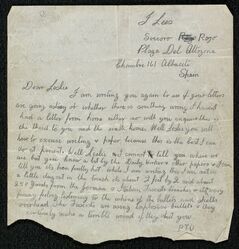 J Lees
Socorro Rojo
Plaza Del Altozano
Chambre 161 Albacete
Spain
Dear Leslie
I am writing you again to see if your letters
are going astray or whether there is something wrong I havent
had a letter from home either so will you enquire this is
the third to you and the sixth home. Well Leslie you will
have to excuse writing & paper because this is the best I can
do at present. Well Leslie I cannot tell you where we
are but you know a bit by the Daily Workers & other papers so I can
tell you its been pretty hot while I am writing this I am
a little dug out in the trench its about 2 feet by 2 and about
250 yards from the German & Italian Fascists trenches
being listening to the whine of the bullets and shells
overhead the Fascists use many explosive bullets & they
certainly make a terrible wound if they hit you
PTO